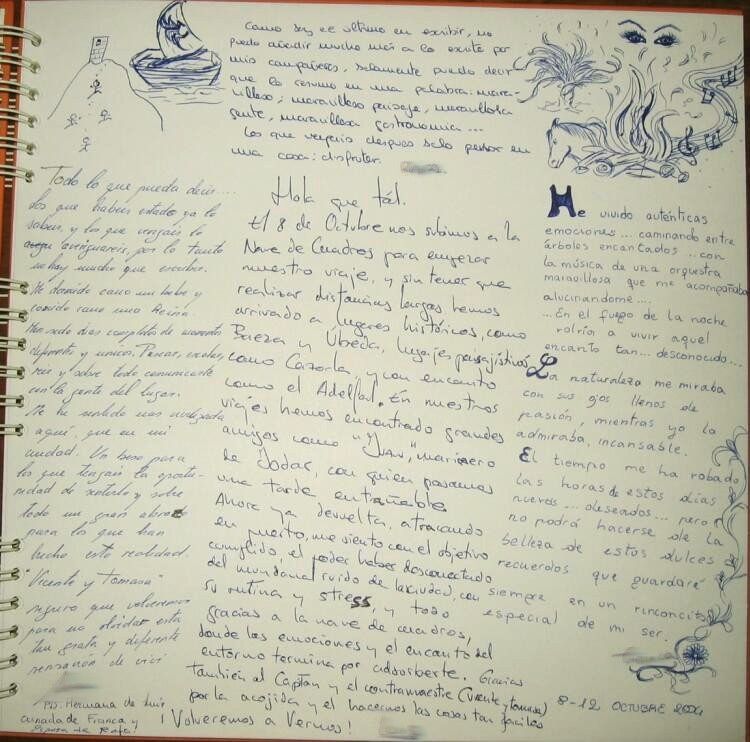 Como soy el ultimo en escribir, no
puedo añadir mucho mas a lo escrito por
mis compañeros, solamente puedo decir
que lo resumo en una palabra: mara-
villoso; maravilloso paisaje, maravillosa
gente, maravillosa gastronomia...
Los que vengais despues solo pensar en
una cosa: disfrutar.
Todo lo que pueda decir....
los que habeis estado ya lo
sabeis, y los que vengais lo
averiguareis, por lo tanto
no hay mucho que escribir.
He dormido como un bebe y
comido como una Reina.
Han sido dias completos de momentos
diferentes y unicos. Pensar,
reir y sobre todo comunicarte
con la gente del lugar.
Me he sentido mas
aqui, que en mi
ciudad. Un beso para
los que tengais la oportu-
nidad de sentirlo y sobre
todo un gran abrazo
para los que han
hecho esta realidad.
"Vicente y Tomasa"
seguro que volveremos
para no olvidar esta
tan grata y diferente
sensación de vivir
PD. Hermana de Luis
cuñada de Franca y
Hola que tál.
El 8 de Octubre nos subimos a la
Nave de Cuadros para empezar
nuestro viaje, y sin tener que
realizar distancias largas hemos
arrivado a lugares históricos, como
Baeza y Úbeda, lugares paisajistivos
como Cazorla, y con encanto
como el Adelfal. En nuestros
viajes hemos encontrado grandes
amigos como "Juan", marinero
de Jodar, con quien pasamos
una tarde entrañable.
Ahora ya devuelta, atracando
en puerto, me siento con el objetivo
cumplido, el poder haber desconectado
del mundanal ruido de la ciudad, con
su rutina y stress, y todo
gracias a la nave de cuadros,
donde las emociones y el encanto del
entorno termina por adsorberte. Gracias
también al Capitan y el contramaestre (Vicente y tomasa)
por la acojida y el hacernos las cosas tan faciles
¡Volveremos a Vernos!
He vivido auténticas
emociones... caminando entre
árboles encantados.. con
la música de una orquestra
maravillosa que me acompañaba
alucinandome....
...En el fuego de la noche
volvía a vivir aquel
encanto tan... desconocido...
La naturaleza me miraba
con sus ojos llenos de
pasión, mientras yo la
admiraba, incansable.
El tiempo me ha robado
las horas de estos días
nuevos... deseados... pero
no podrá hacerse de la
belleza de estos dulces
recuerdos que guardaré
siempre en un rinconcito
especial de mi ser.
8-12 OCTUBRE 2004